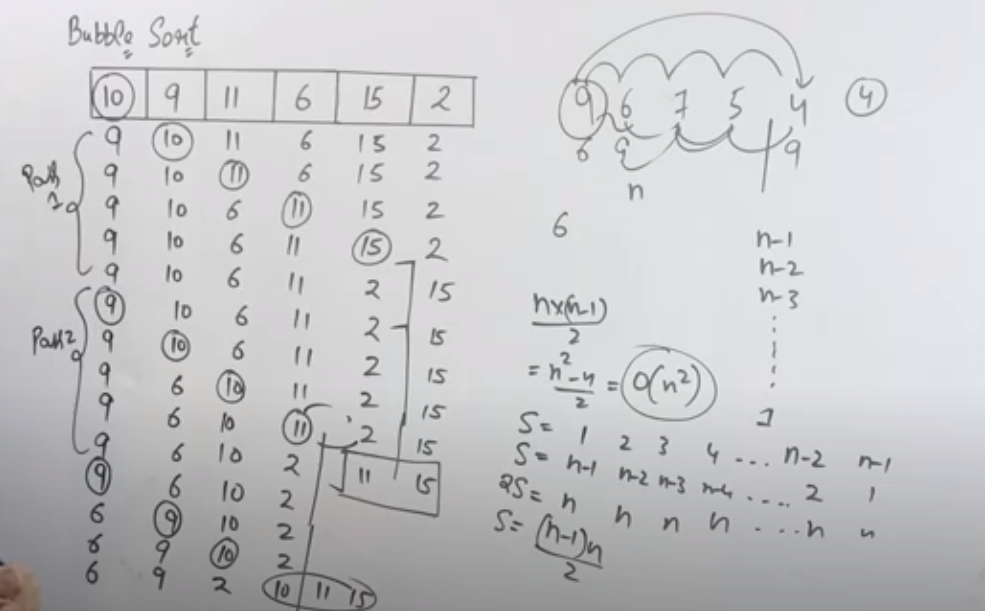 Bubble Sort
10 9 11 6 15 2
9 10 11 6 15 2
9 10 11 6 15 2
9 10 6 11 15 2
9 10 6 11 15 2
9 10 6 11 2 15
9 10 6 11 2 15
9 10 6 11 2 15
9 6 10 11 2 15
9 6 10 11 2 15
9 6 10 2 11 15
9 6 10 2
6 9 10 2
6 9 10 2
6 9 2 10 11 15
Path 1
Path 2
9 6 7 5 4
6 9 9
n
4
6
n-1
n-2
n-3
1
n×(n-1)
2
= n²-n
2
= O(n²)
S= 1 2 3 4 ... n-2 n-1
S= n-1 n-2 n-3 n-4 .... 2 1
2S= n n n n ... n n
S= (n-1)n
2